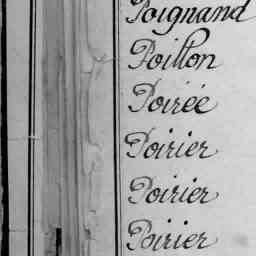 Poignand
Poillon
Poirée
Poirier
Poirier
Poirier